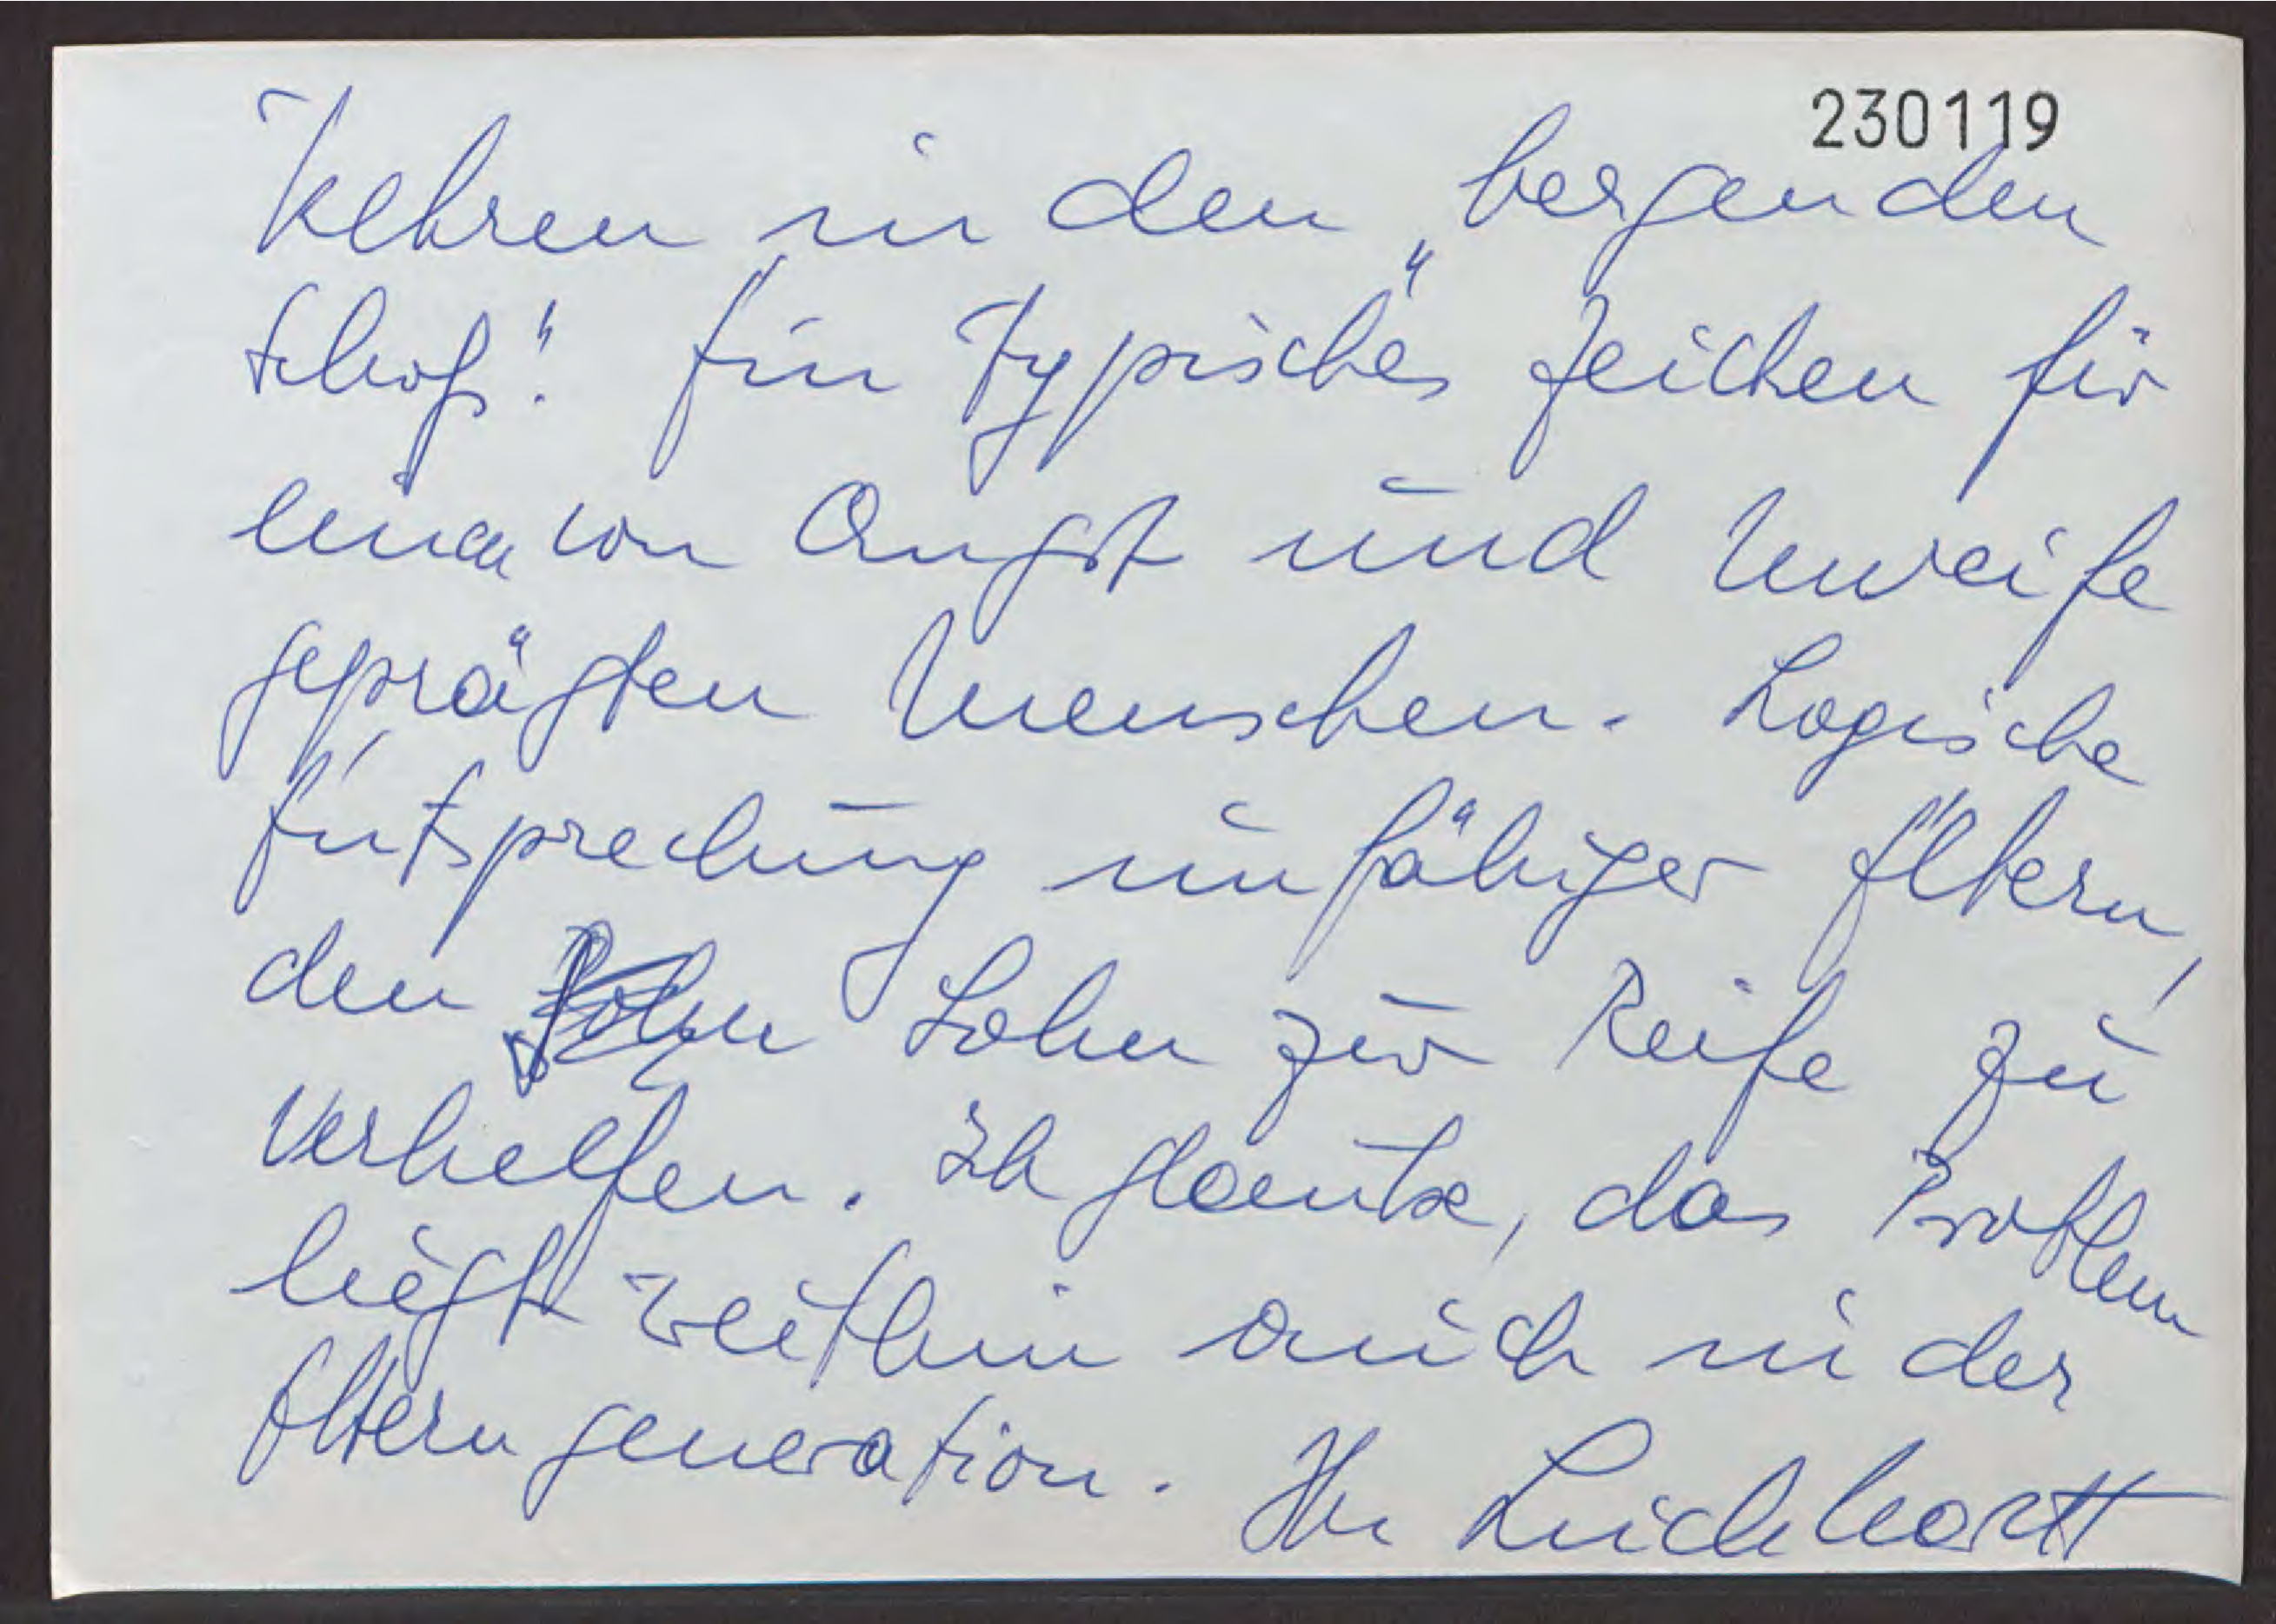 230119
kehren in den „bergenden
Schoß". Ein typisches Zeichen für
einen von Angst und Unreife
geprägten Menschen. Logische
Entsprechung unfähiger Eltern,
den Sohn zur Reife zu
verhelfen. Ich glaube, das Problem
liegt weithin auch in der
Elterngeneration. Ihr